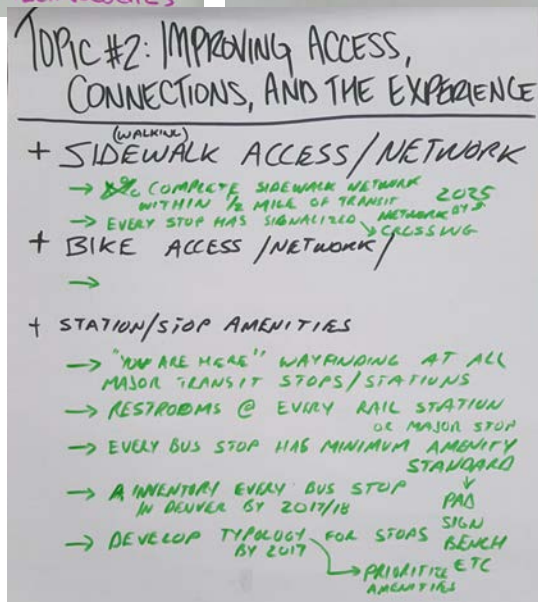 TOPIC #2: IMPROVING ACCESS,
CONNECTIONS, AND THE EXPERIENCE
(WALKING)
+ SIDEWALK ACCESS/NETWORK
→ COMPLETE SIDEWALK NETWORK
WITHIN 1/2 MILE OF TRANSIT
NETWORK BY 2025
→ EVERY STOP HAS SIGNALIZED
CROSSING
+ BIKE ACCESS/NETWORK/
→
+ STATION/STOP AMENITIES
→ "YOU ARE HERE" WAYFINDING AT ALL
MAJOR TRANSIT STOPS/STATIONS
→ RESTROOMS @ EVERY RAIL STATION
OR MAJOR STOP
→ EVERY BUS STOP HAS MINIMUM AMENITY
STANDARD
PAD
SIGN
BENCH
ETC
→ A INVENTORY EVERY BUS STOP
IN DENVER BY 2017/18
→ DEVELOP TYPOLOGY FOR STOPS
BY 2017
→ PRIORITIZE
AMENITIES